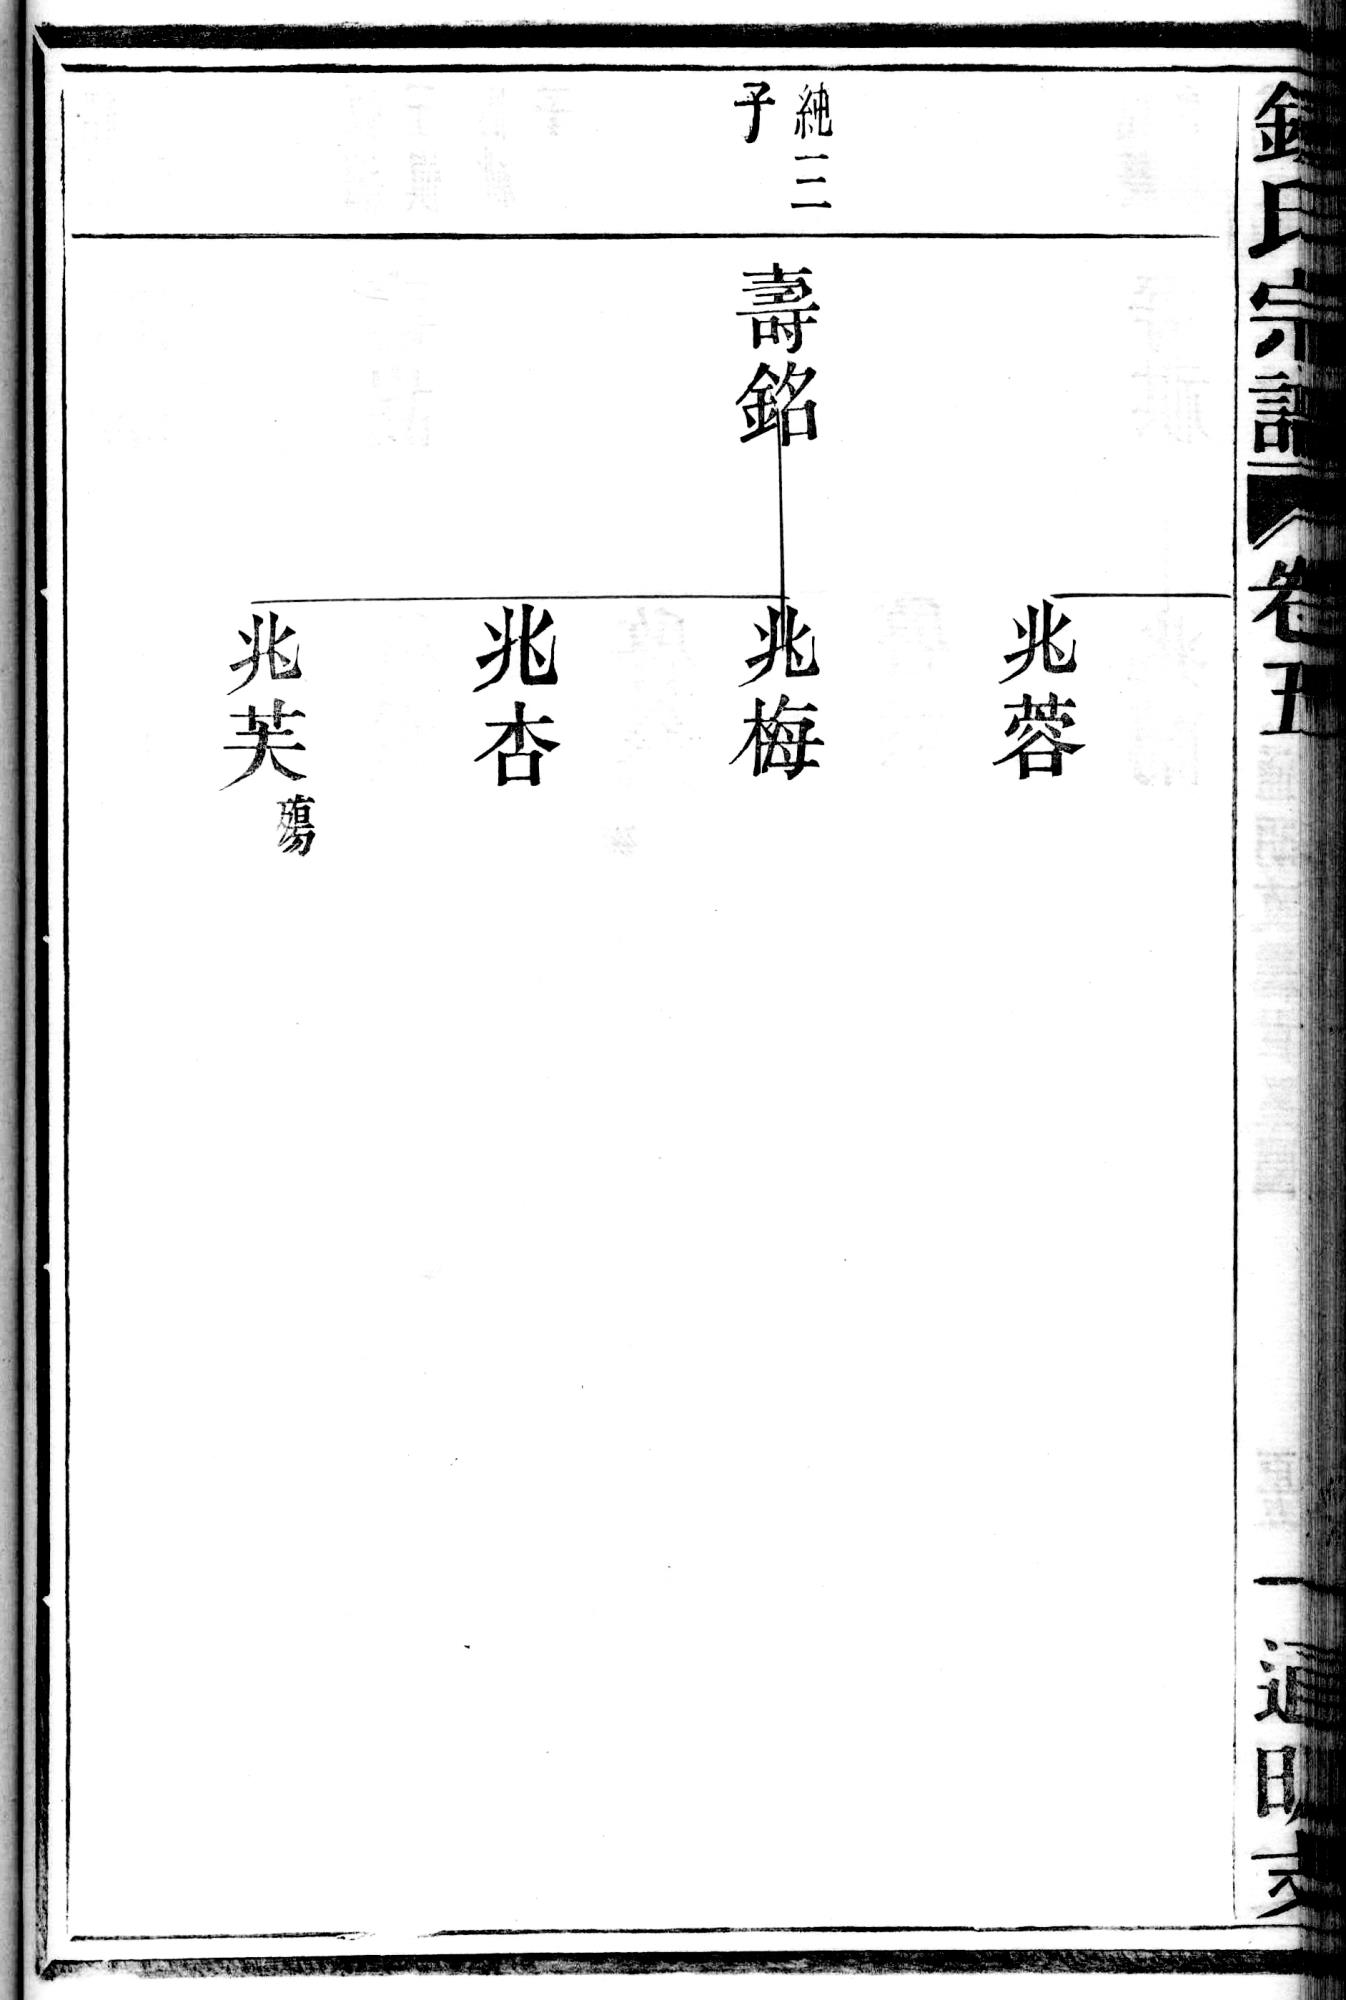 氏宗譜
卷五
通明支
純三
子
壽銘
兆蓉
兆梅
兆杏
兆芙 殤